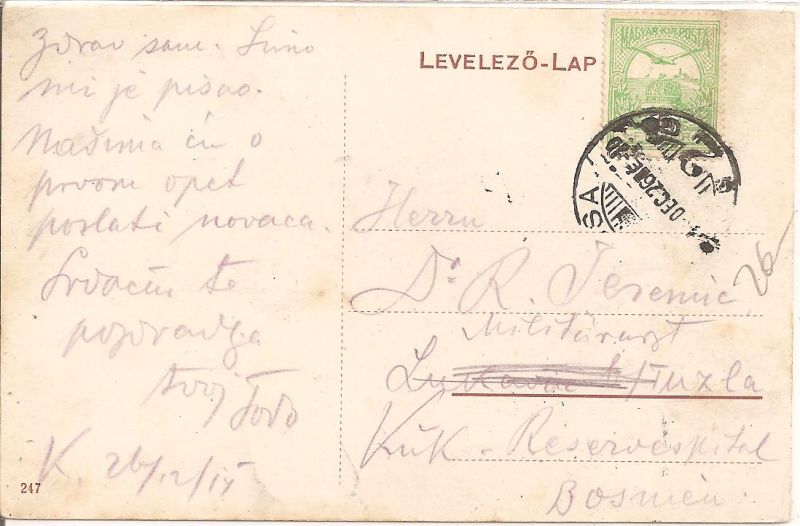 Zdrav sam. Simo
mi je pisao.
Našima ću o
prvom opet
poslati novaca.
Srdačno te
pozdravlja
tvoj Todo
K. 26/12/15
247
LEVELEZŐ-LAP
MAGYAR KIR. POSTA
DEC 26
SA
26
Herrn
Dr. R. Jeremić
Militärarzt
Tuzla
K u K - Reservespital
Bosnien